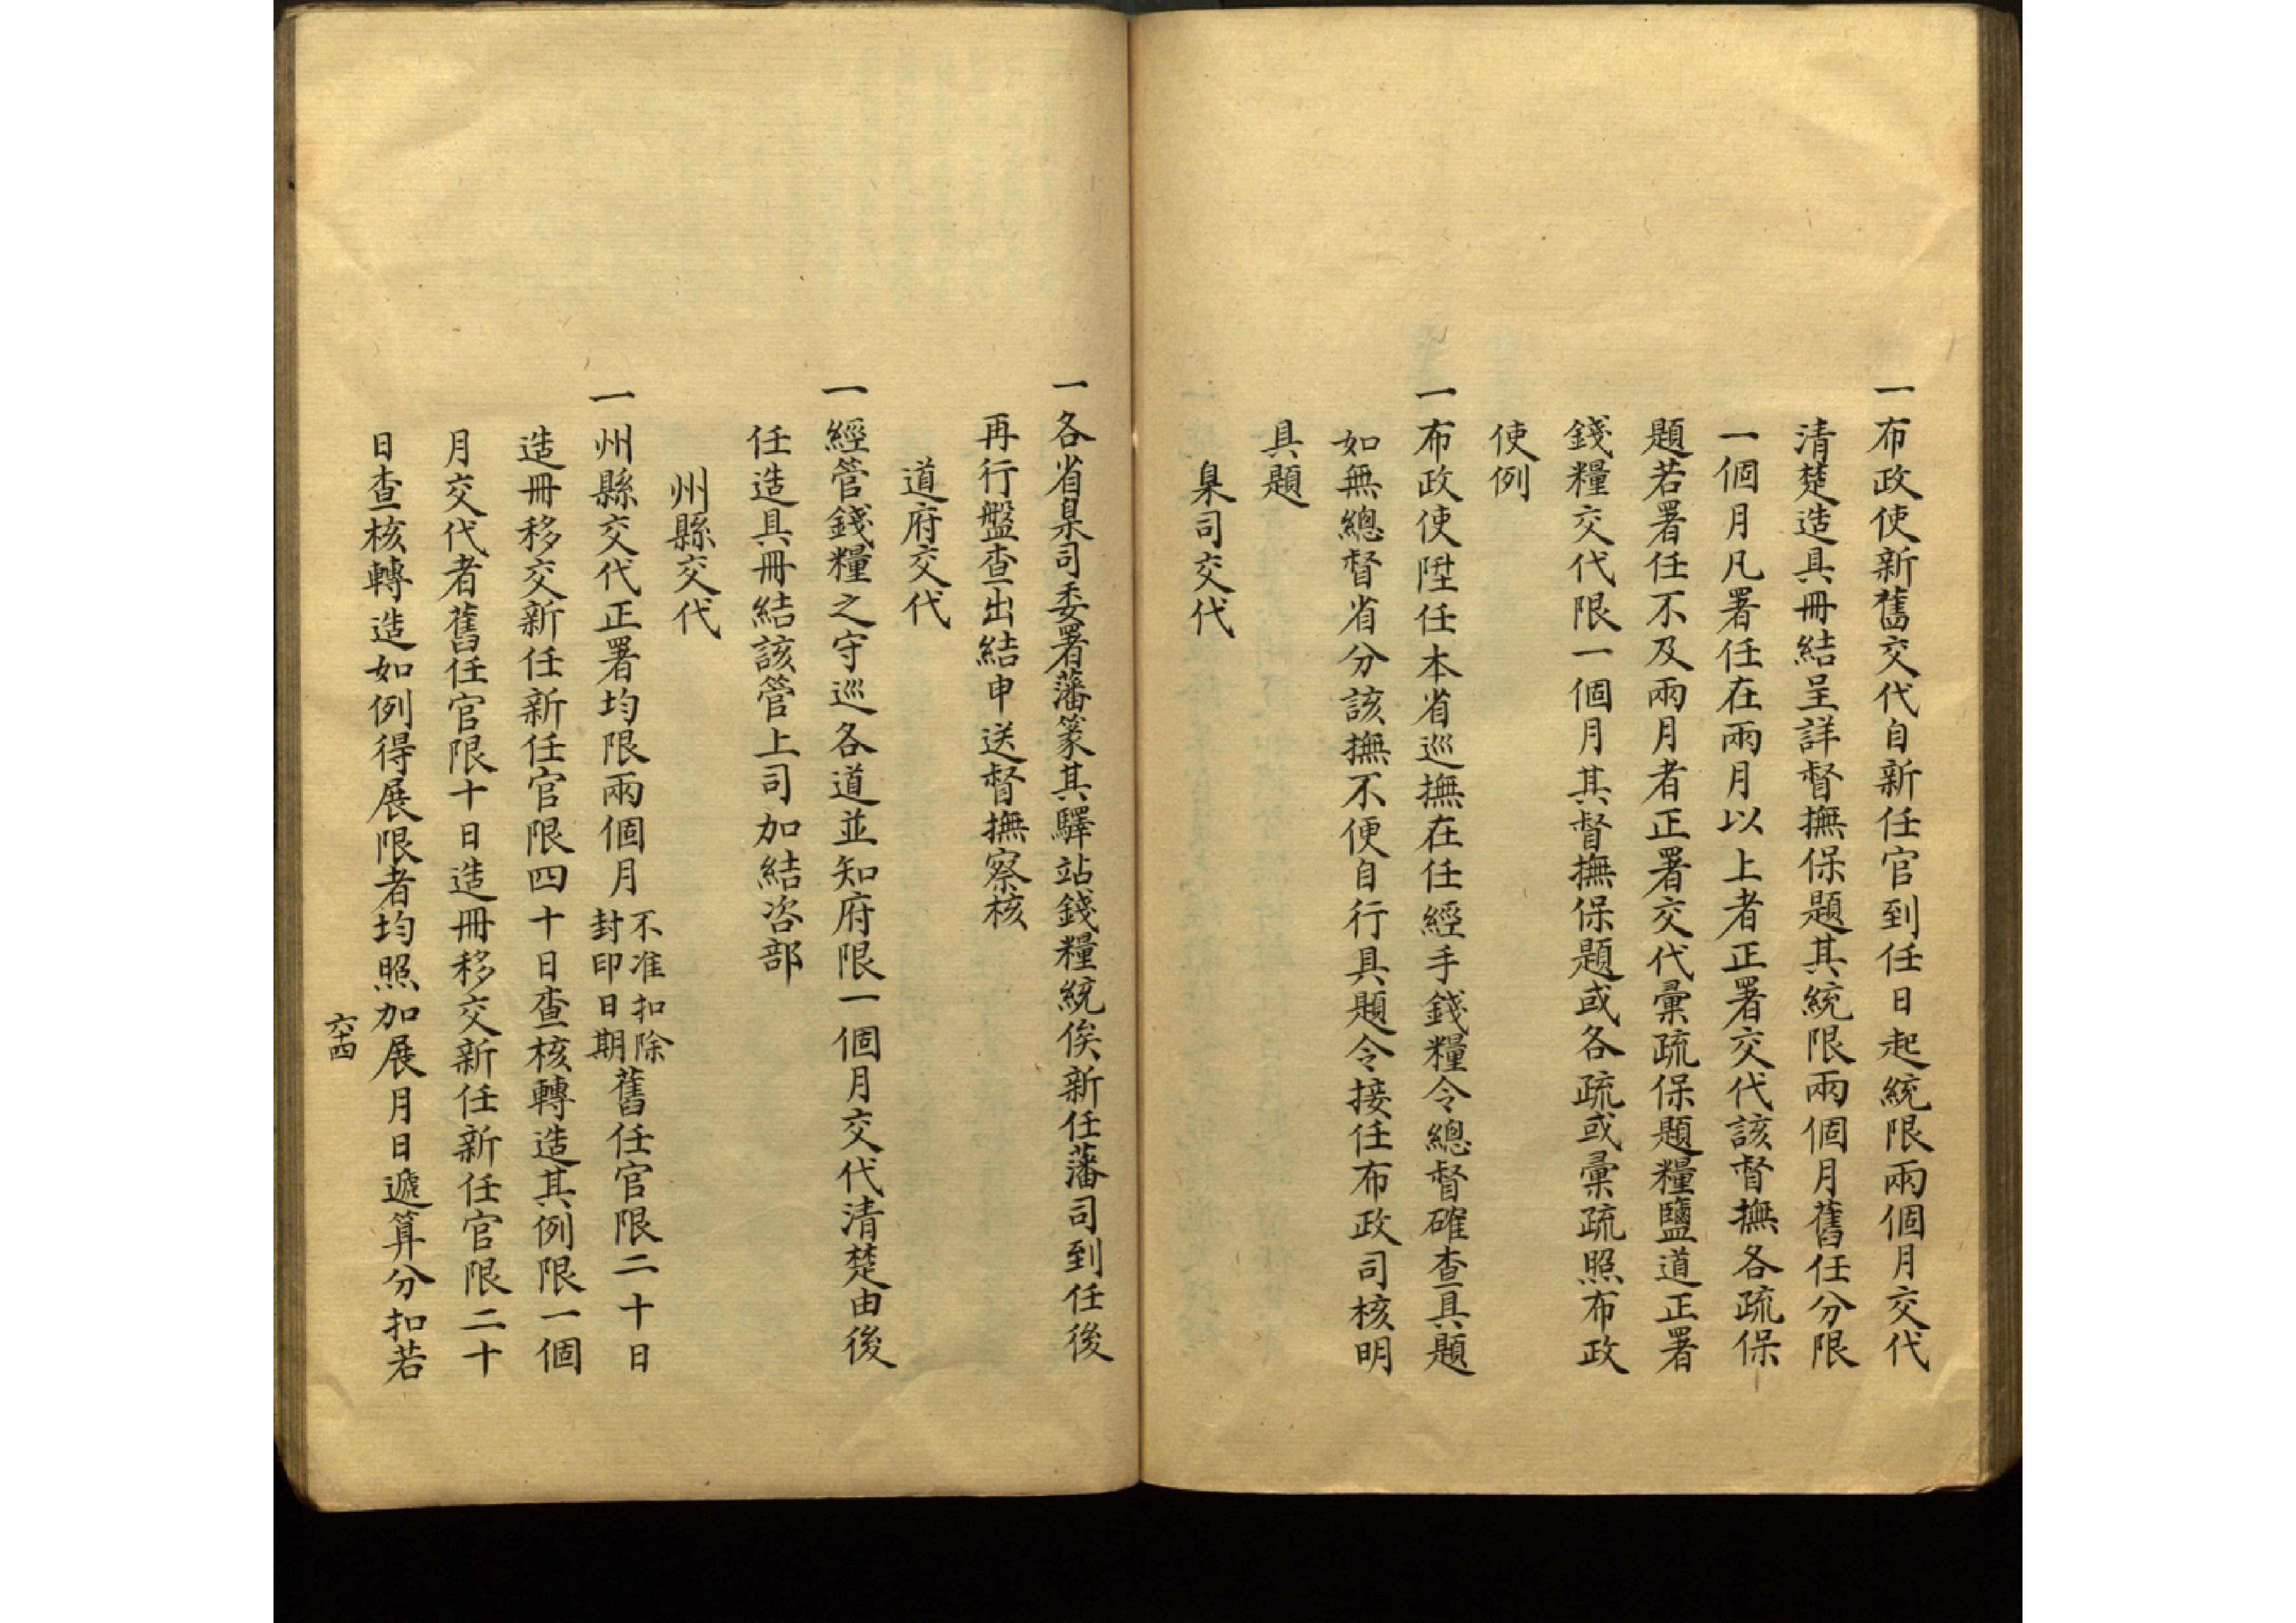 一布政使新舊交代自新任官到任日起統限兩個月交代
清楚造具冊結呈詳督撫保題其統限兩個月舊任分限
一個月凡署任在兩月以上者正署交代該督撫各疏保
題若署任不及兩月者正署交代彙疏保題糧鹽道正署
錢糧交代限一個月其督撫保題或各疏或彙疏照布政
使例
一布政使陞任本省巡撫在任經手錢糧令總督確查具題
如無總督省分該撫不便自行具題令接任布政司核明
具題
臬司交代
一各省臬司委署藩篆其驛站錢糧統俟新任藩司到任後
再行盤查出結申送督撫察核
道府交代
一經管錢糧之守巡各道並知府限一個月交代清楚由後
任造具冊結該管上司加結咨部
州縣交代
一州縣交代正署均限兩個月不准扣除封印日期舊任官限二十日
造冊移交新任新任官限四十日查核轉造其例限一個
月交代者舊任官限十日造冊移交新任新任官限二十
日查核轉造如例得展限者均照加展月日遞算分扣若
六十四